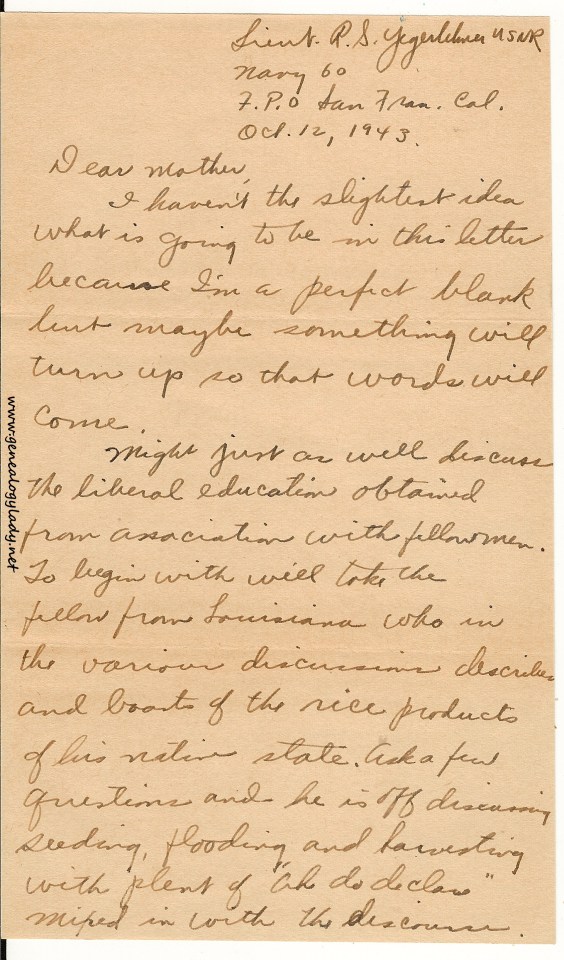 Lieut. R. S. Yegerlehner USNR
Navy 60
F.P.O San Fran. Cal.
Oct. 12, 1943.
Dear mother,
I haven't the slightest idea
what is going to be in this letter
because I'm a perfect blank
but maybe something will
turn up so that words will
come.
Might just as well discuss
the liberal education obtained
from association with fellowmen.
To begin with will take the
fellow from Louisiana who in
the various discussions describes
and boasts of the rice products
of his native state. Ask a few
questions and he is off discussing
seeding, flooding and harvesting
with plent of "Ah do declare"
mixed in with the discourse.
www.genealogylady.net